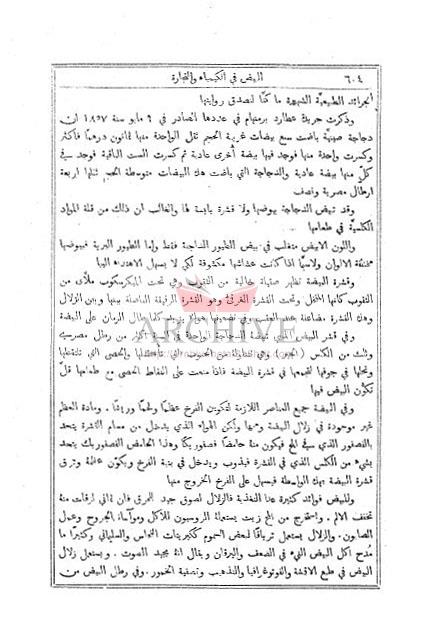 ٦٠٤ البيض في الكيمياء والتجارة
الجرائد الطبيعية الشهيرة ما كنّا لنصدق روايتها
وذكرت جريدة عطارد برمنهام في عددها الصادر في ٩ مايو سنة ١٨٥٧ ان
دجاجة صينية باضت سبع بيضات غريبة الحجم ثقل الواحدة منها ثمانون درهماً فأكثر
وكسرت واحدة منها فوجد فيها بيضة أخرى عادية ثم كسرت الست الباقية فوجد في
كلٍّ منها بيضة عادية والدجاجة التي باضت هك البيضات متوسطة الحجم ثقلها اربعة
ارطال مصرية ونصف
وقد تبيض الدجاجة بيوضها ولا قشرة يابسة لها والغالب ان ذلك من قلة المواد
الكلسية في طعامها
واللون الابيض متغلب في بيض الطيور الداجنة فقط واما الطيور البرية فبيوضها
مختلفة الالوان ولاسيما اذا كانت عشاشها مكشوفة لكي لا يسهل الاهتداء اليها
وقشرة البيضة تظهر صقيلة خالية من الثقوب وهي تحت الميكرسكوب ملأى من
الثقوب كأنها المنخل وتحت القشرة الغرقئ وهو القشرة الرقيقة الفاصلة بينها وبين الزلال
وهك القشرة مضاعفة عند العقب وفي تضعيفها هواء يزيد كلما طال الزمان على البيضة
وفي قشر البيض الذي تبيضه الدجاجة الواحدة في السنة اكثر من رطل مصري
وثلث من الكلس (الجير) وهي تتناوله من الحبوب التي تأكلها والحصى التي تلتقطها
وتحلها في جوفها لتجمعها في قشرة البيضة فاذا منعت على التقاط الحصى مع طعامها قلّ
تكوّن البيض فيها
وفي البيضة جميع العناصر اللازمة لتكوين الفرخ عظماً ولحماً وريشاً. ومادة العظم
غير موجودة في زلال البيضة ومحها ولكن الهواء الذي يدخل من مسام القشرة يتحد
بالفصفور الذي في المح فيكون منه حامضاً فصفوريكاً وهذا الحامض الفصفوريك يتحد
بشيء من الكلس الذي في القشرة فيذوب ويدخل في بنية الفرخ ويكوّن عظامه وترق
قشرة البيضة بهك الواسطة فيسهل على الفرخ الخروج منها
وللبيض فوائد كثيرة عدا التغذية فالزلال لصوق جيد للحرق فان تالي لرقات منه
تخفف الالم. واستخرج من المح زيت يستعمله الروسيون للأكل ومواساة الجروح وعمل
الصابون. والزلال يستعمل ترياقاً لبعض السموم ككبريتات النحاس والسليماني وكثيراً ما
مُدح اكل البيض النيء في الضعف واليرقان ويقال انه يجيد الصوت. ويستعمل زلال
البيض في طبع الاقمشة والفوتوغرافيا والتذهيب وتصفية الخمور. وفي رطل البيض من
ARCHIVE